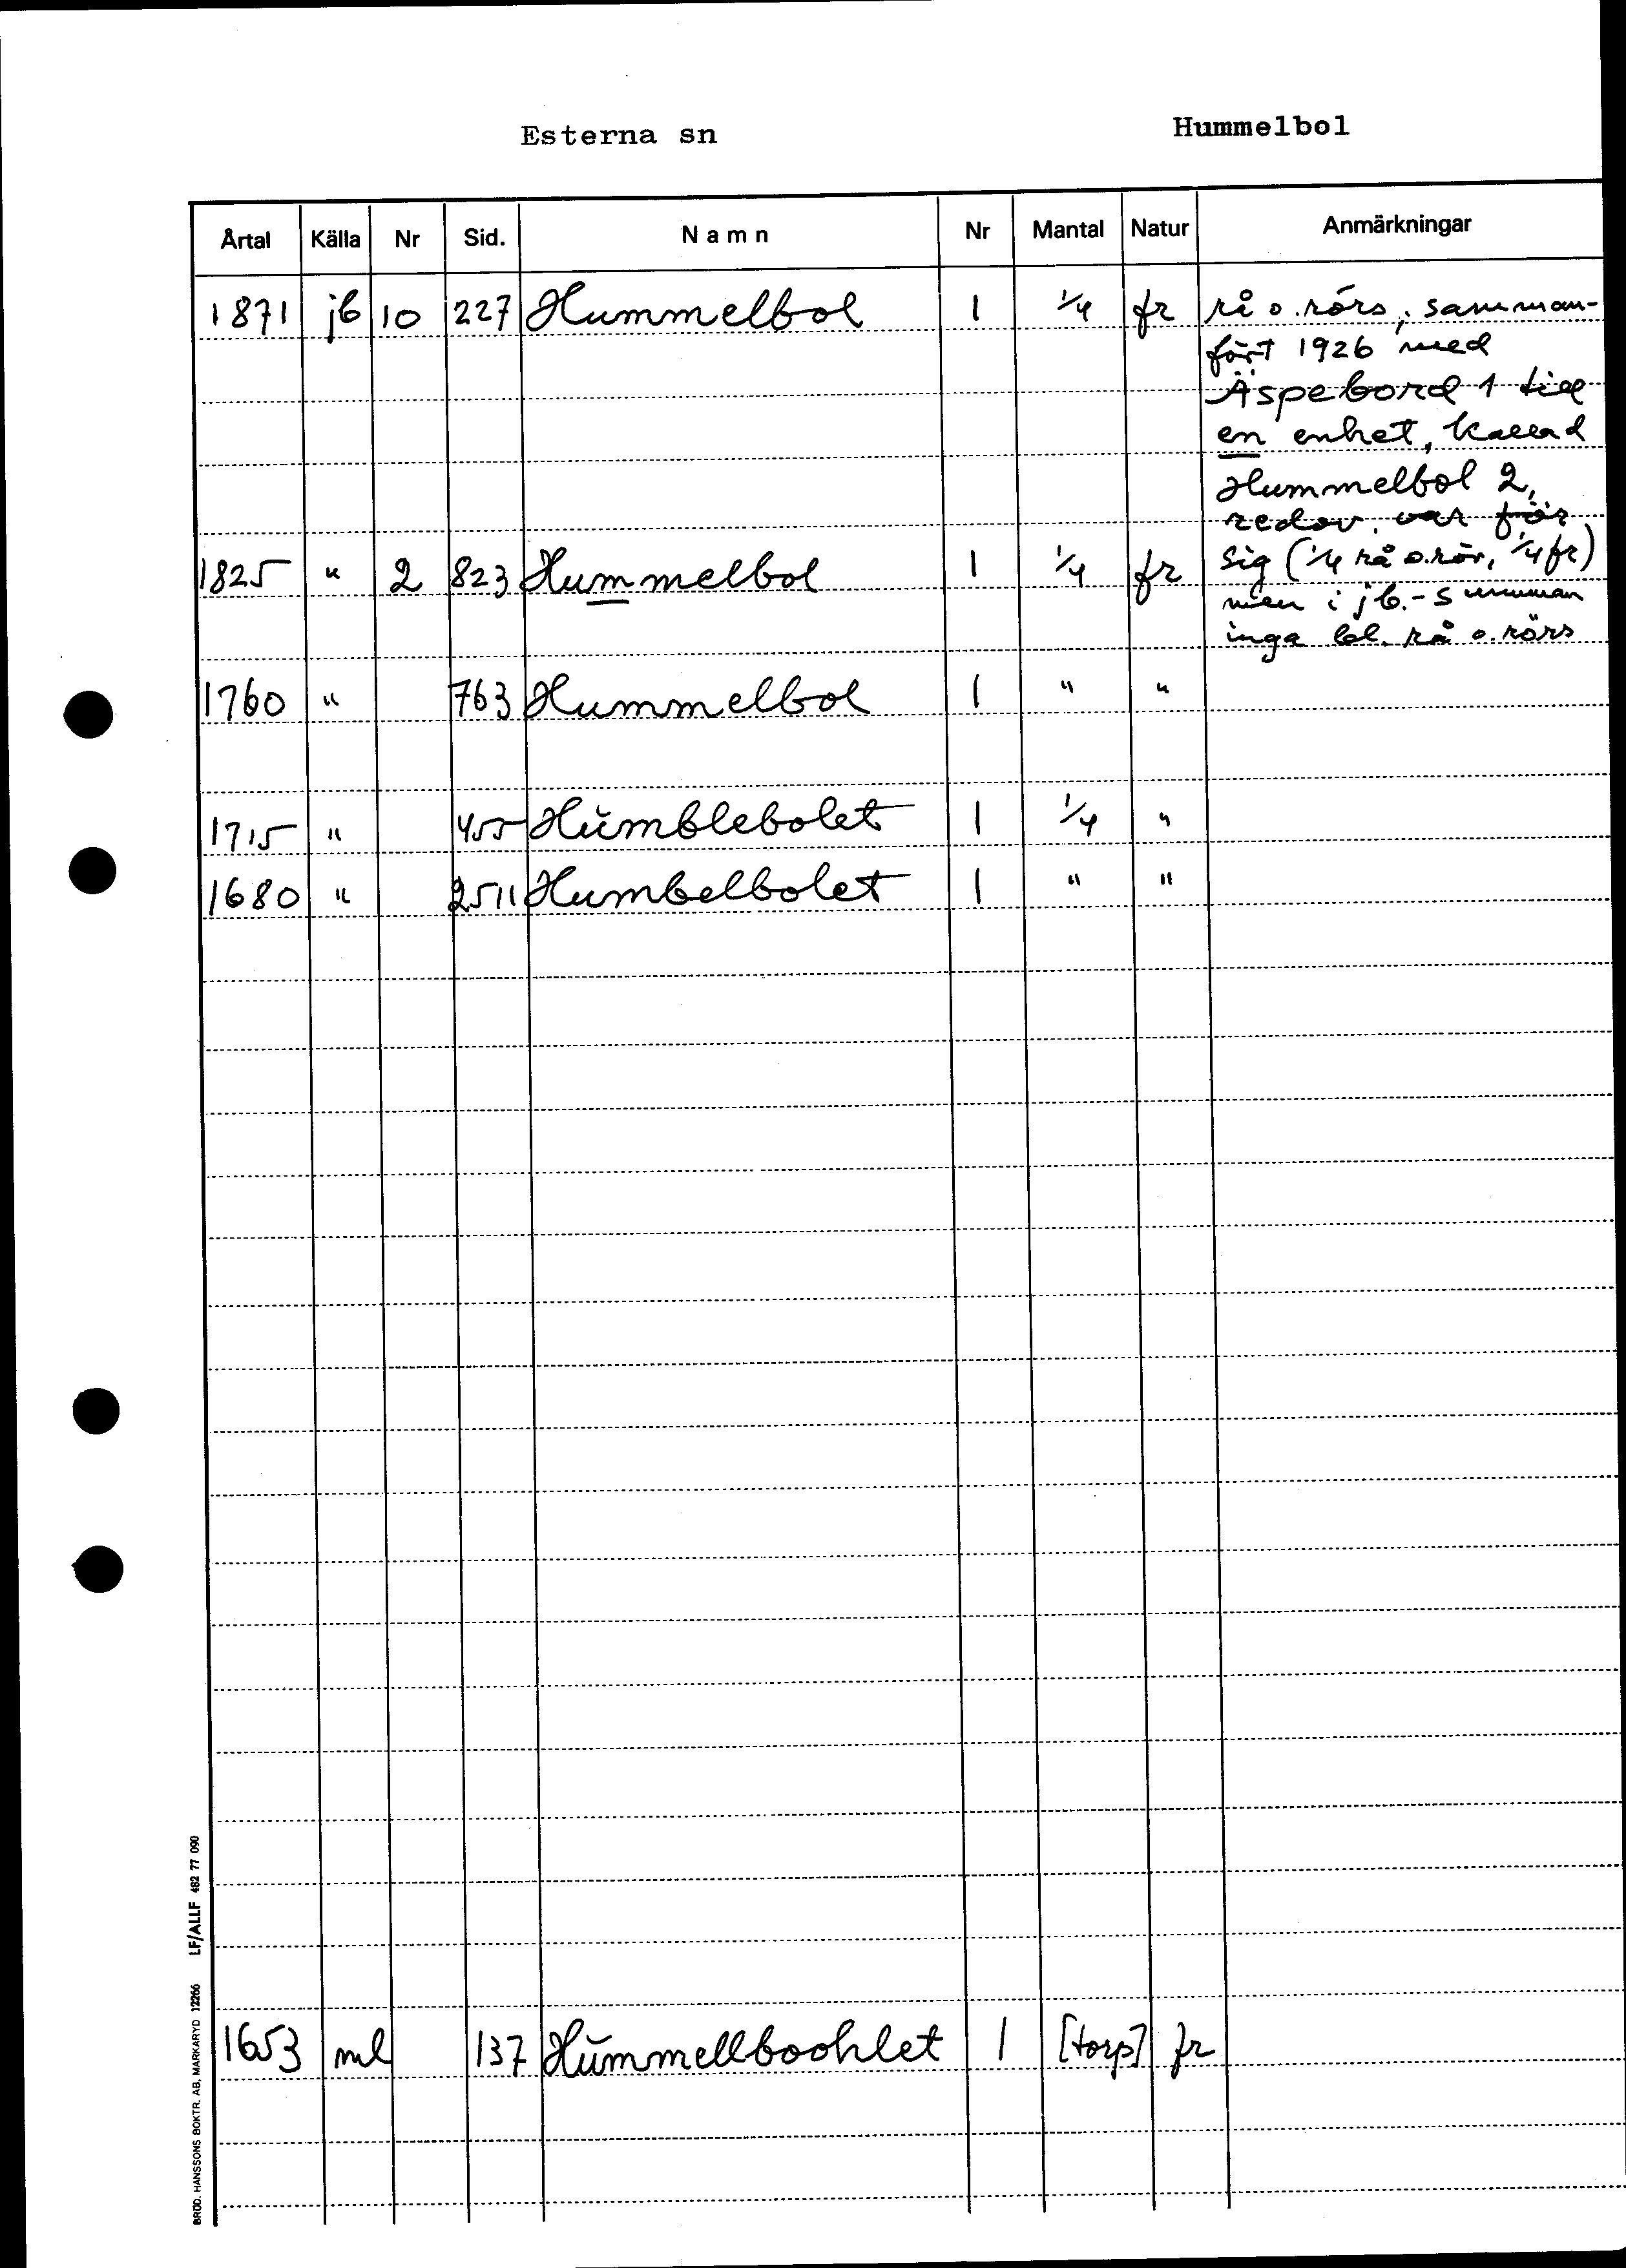 Esterna sn
Hummelbol
Årtal Källa Nr Sid. Namn Nr Mantal Natur Anmärkningar
1871 jb 10 227 Hummelbol 1 1/4 fr rå o. rörs, samman-
fört 1926 med
Äspebord 1 till
en enhet, kallad
Hummelbol 2,
redov. var för
1825 " 2 823 Hummelbol 1 1/4 fr sig (1/4 rå o. rör, 1/4 fr)
men i jb.-summan
inga bl. rå o. rörs
1760 " 763 Hummelbol 1 " "
1715 " 455 Humblebolet 1 1/4 "
1680 " 2511 Humbelbolet 1 " "
1653 ml 137 Hummellboohlet 1 [torp] fr
BRÖD. HANSSONS BOKTR. AB, MARKARYD 12266 LF/ALLF 482 77 090